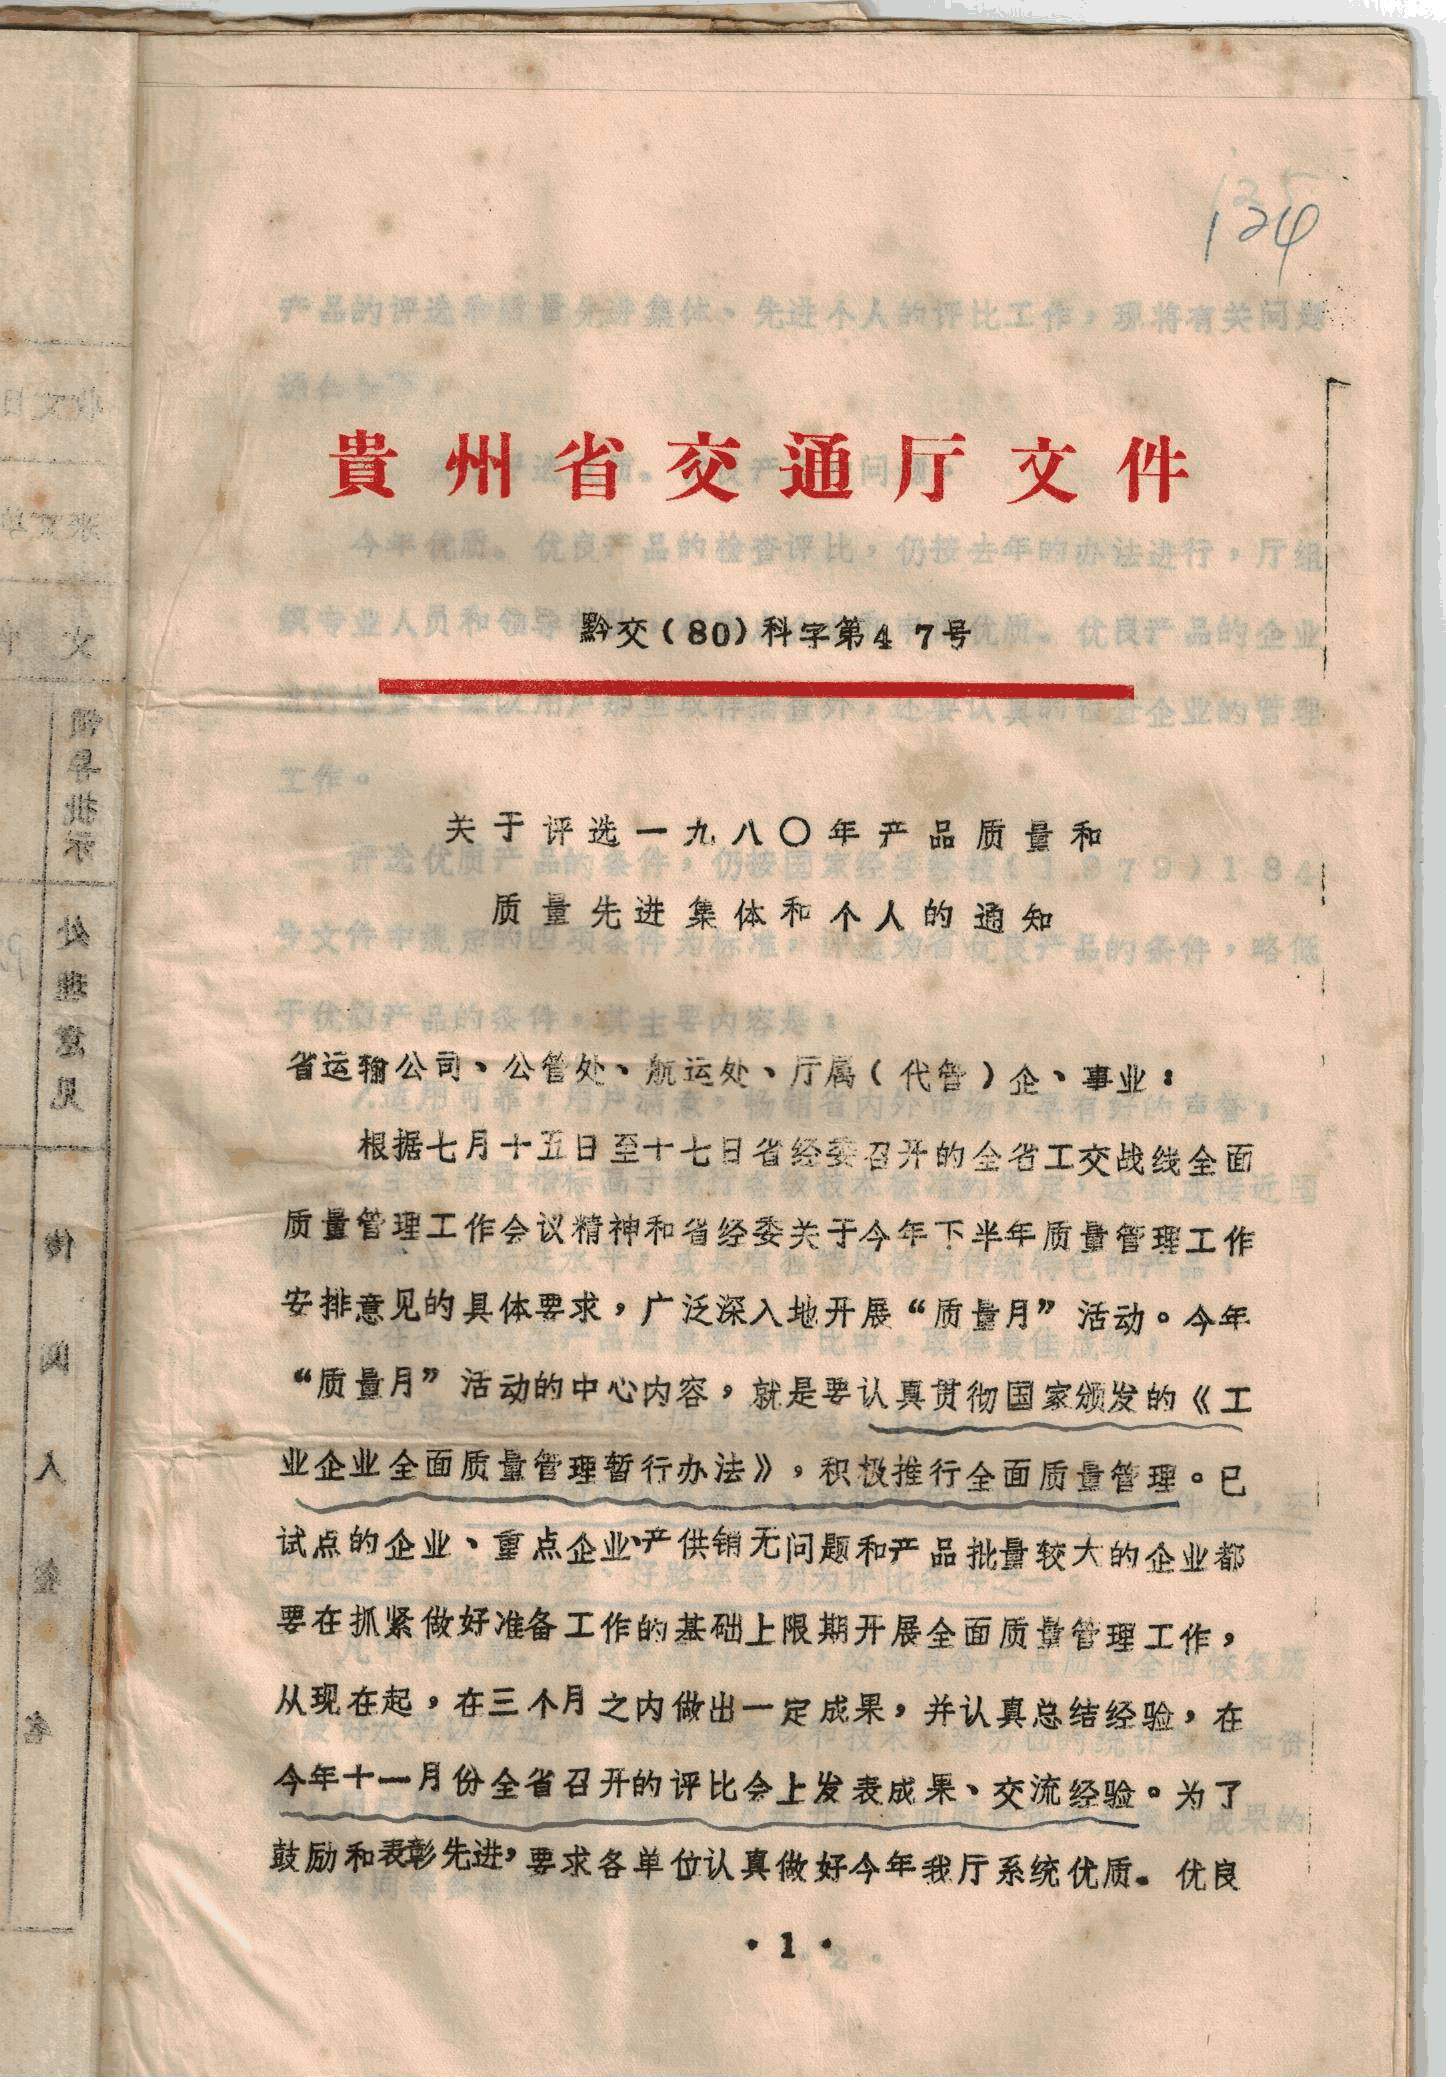 124
貴州省交通厅文件
黔交(80)科字第47号
关于评选一九八〇年产品质量和
质量先进集体和个人的通知
省运输公司、公管处、航运处、厅属(代管)企、事业:
根据七月十五日至十七日省经委召开的全省工交战线全面
质量管理工作会议精神和省经委关于今年下半年质量管理工作
安排意见的具体要求,广泛深入地开展“质量月”活动。今年
“质量月”活动的中心内容,就是要认真贯彻国家颁发的《工
业企业全面质量管理暂行办法》,积极推行全面质量管理。已
试点的企业、重点企业、产供销无问题和产品批量较大的企业都
要在抓紧做好准备工作的基础上限期开展全面质量管理工作,
从现在起,在三个月之内做出一定成果,并认真总结经验,在
今年十一月份全省召开的评比会上发表成果、交流经验。为了
鼓励和表彰先进,要求各单位认真做好今年我厅系统优质。优良
·1·
领导批示
处理意见
传阅人签名